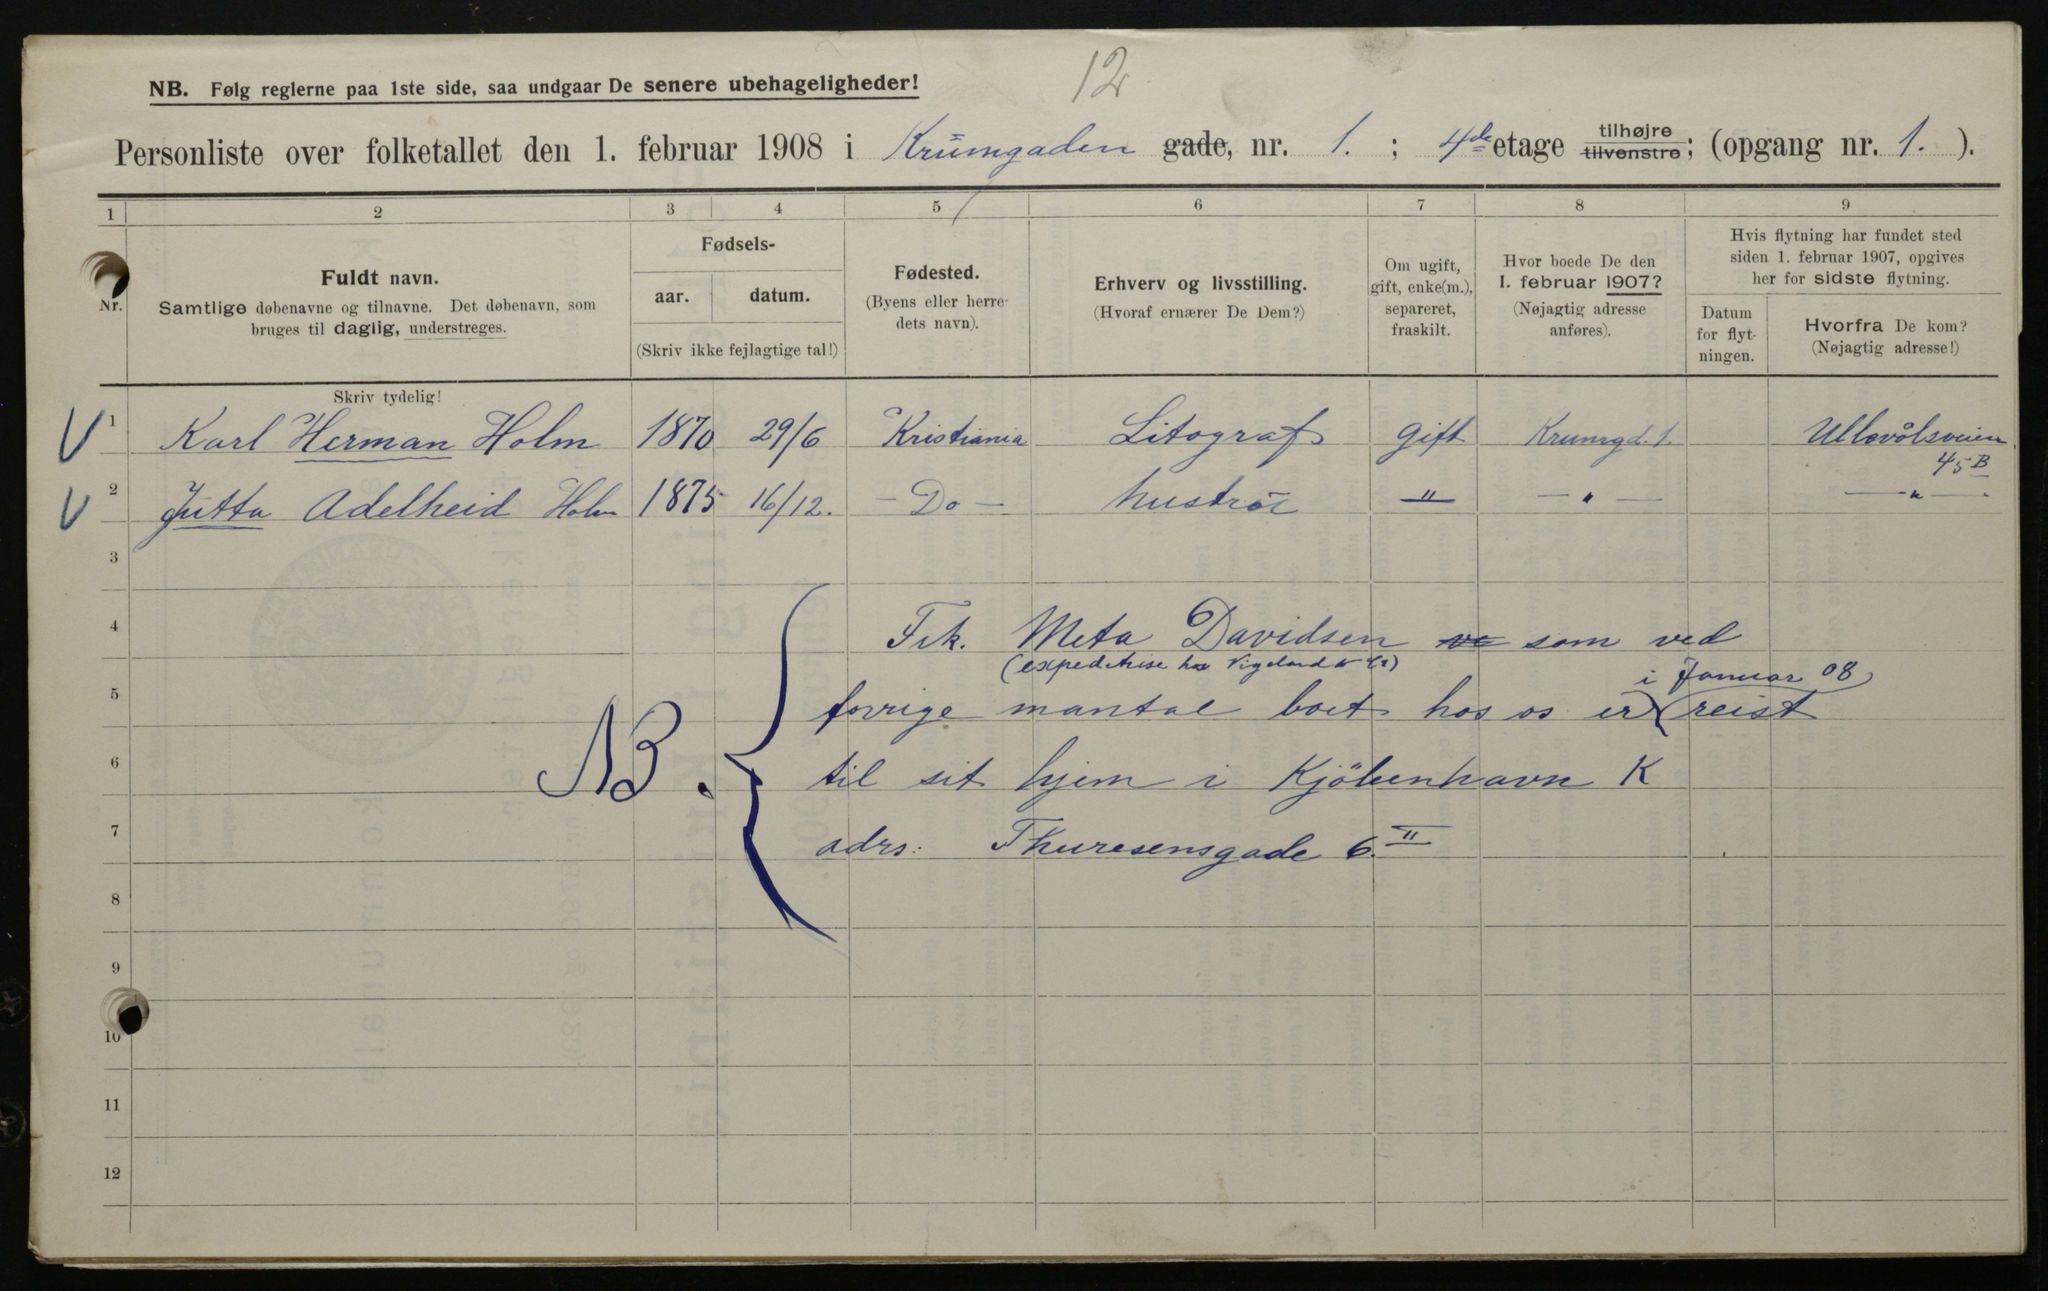 12
NB. Følg reglerne paa 1ste side, saa undgaar De senere ubehageligheder!
Personliste over folketallet den 1. februar 1908 i Krumgaden gade, nr. 1. ; 4de etage tilhøjre tilvenstre; (opgang nr. 1. ).
1 2 3 4 5 6 7 8 9
Nr.
Fuldt navn.
Samtlige døbenavne og tilnavne. Det døbenavn, som
bruges til daglig, understreges.
Fødsels-
aar. datum.
(Skriv ikke fejlagtige tal!)
Fødested.
(Byens eller herre-
dets navn).
Erhverv og livsstilling.
(Hvoraf ernærer De Dem?)
Om ugift,
gift, enke(m.),
separeret,
fraskilt.
Hvor boede De den
1. februar 1907?
(Nøjagtig adresse
anføres).
Hvis flytning har fundet sted
siden 1. februar 1907, opgives
her for sidste flytning.
Datum
for flyt-
ningen.
Hvorfra De kom?
(Nøjagtig adresse!)
Skriv tydelig!
1 Karl Herman Holm 1870 29/6 Kristiania Litograf gift Krumgd. 1. Ullevålsveien
45B
2 Jutta Adelheid Holm 1875 16/12. - Do - hustru " - " - - " -
3
4 Frk. Meta Davidsen som ved
(expeditrise hos Vigeland & Co)
i Januar 08
5 forrige mantal boet hos os er reist
NB.
6 til sit hjem i Kjöbenhavn K
7 adrs: Thuresensgade 6. II
8
9
10
11
12